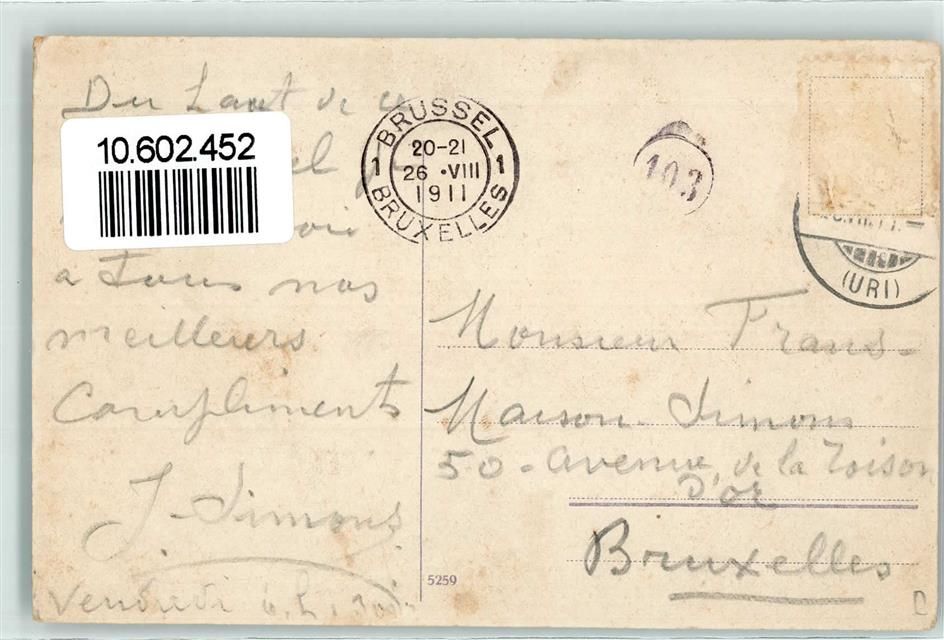 Du haut de ce
10.602.452
a tous nos
meilleurs
Compliments
J. Simons
Vendredi
BRUSSEL
1 20-21 1
26 · VIII
1911
BRUXELLES
103
(URI)
Monsieur Frans-
Maison Simons
50 - avenue de la Toison
D'or
Bruxelles
5259